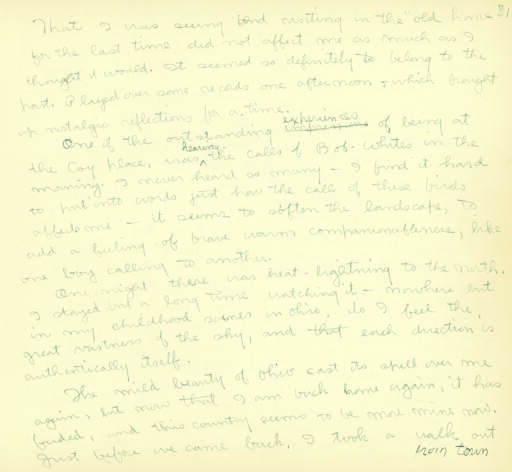 That I was seeing and visiting in the old home
for the last time did not affect me as much as I
thought it would. It seemed so definitely to belong to the
past. Played over some records one afternoon + which brought
up nostalgic reflections for a time.
One of the outstanding experiences of being at
the Coy place, was hearing the calls of Bob-whites in the
morning. I never heard so many - I find it hard
to put into words just how the call of these birds
affects me - it seems to soften the landscape, to
add a feeling of brave warm companionableness, like
one boy calling to another.
One night there was heat-lightning to the north.
I stayed out a long time watching it - nowhere but
in my childhood scenes in Ohio, do I feel the
great vastness of the sky, and that each direction is
authentically itself.
The mild beauty of Ohio cast its spell over me
again, but now that I am back home again, it has
faded, and this country seems to be more mine now.
Just before we came back, I took a walk out
from town